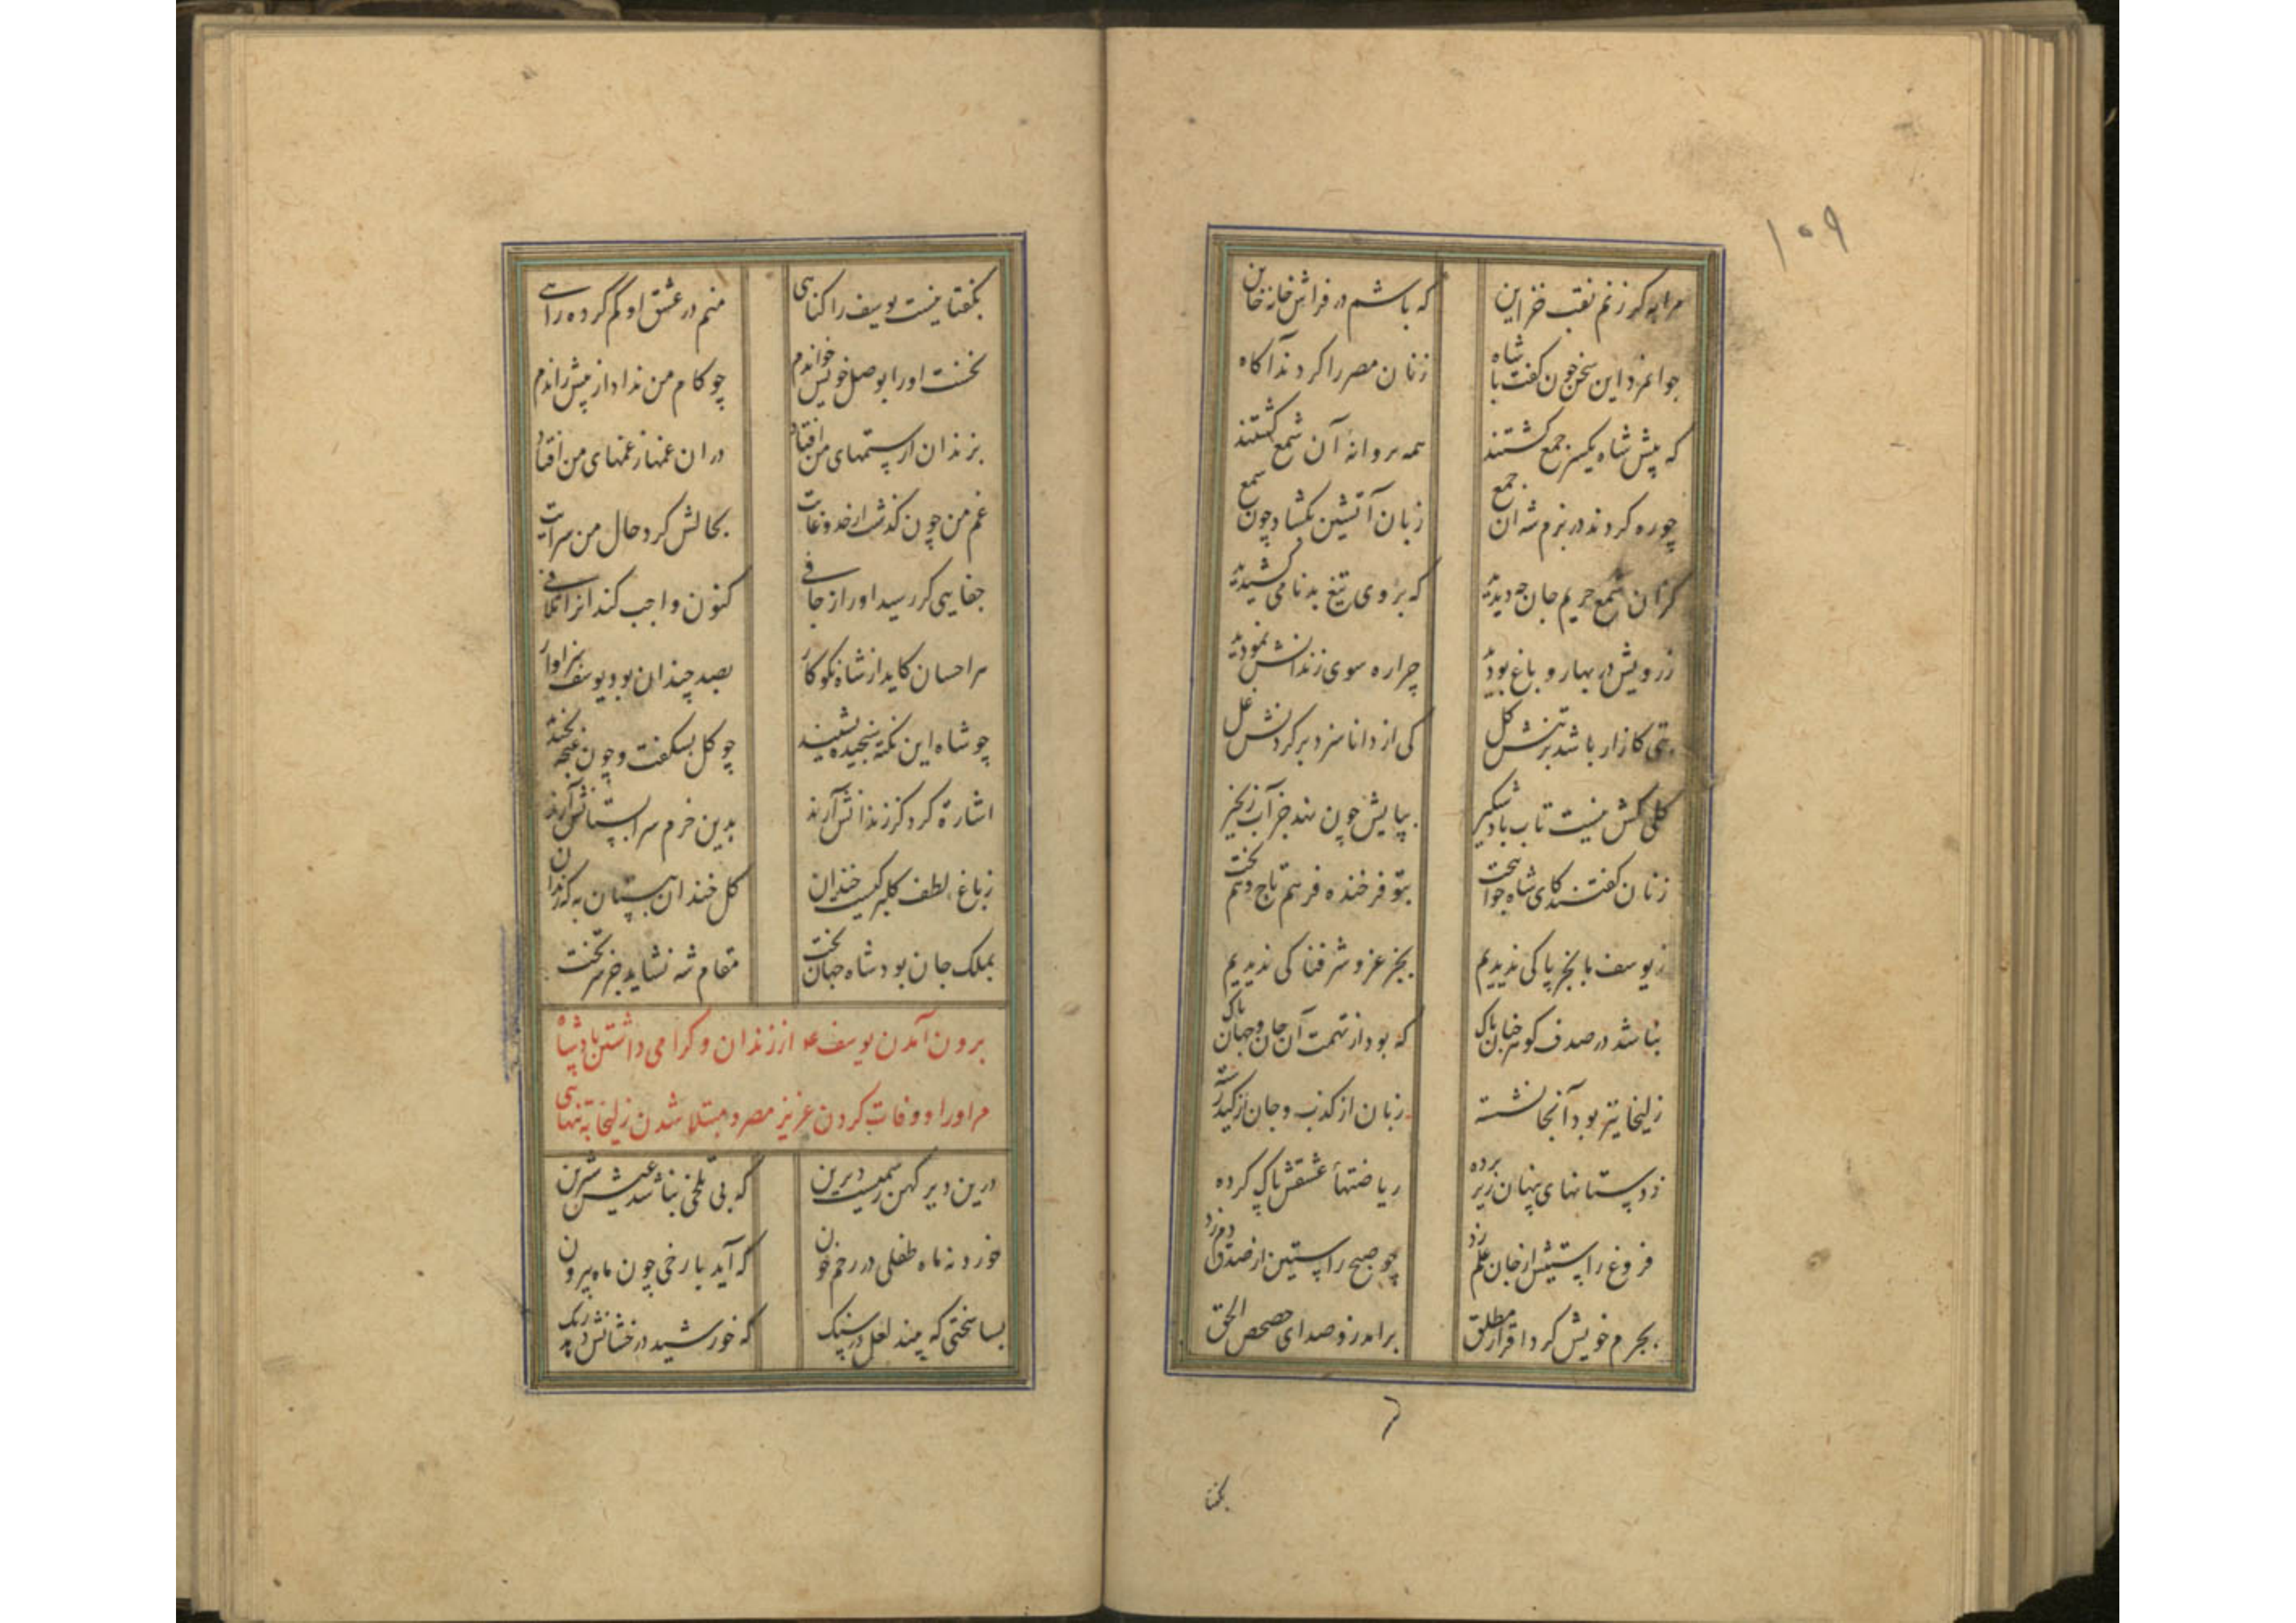 ۱۰۹
مرا به گر زنم نقب خزاین که باشم در فراش خانه خاین
جوانمرد این سخن چون گفت با شاه زنان مصر را کردند آکاه
که پیش شاه یکسر جمع گشتند همه پروانهٔ آن شمع گشتند
چو ره کردند در بزم شه آن جمع زبان آتشین بگشاد چون شمع
کزان شمع حریم جان چه دیدید که بر وی تیغ بدنامی کشیدید
ز رویش در بهار و باغ بودید چرا ره سوی زندانش نمودید
بتی کازار باشد بر تنش کل کی از دانا سزد بر گردنش غل
کلی کش نیست تاب باد شبگیر بپایش چون نهد جز آب زنجیر
زنان گفتند کای شاه جوانبخت بتو فرخنده فر هم تاج و هم تخت
ز یوسف ما بجز پاکی ندیدیم بجز عز و شرفناکی ندیدیم
نباشد در صدف گوهر چنان پاک که بود از تهمت آن جان و جهان پاک
زلیخا نیز بود آنجا نشسته زبان از کذب و جان از کید رسته
ز دستانهای پنهان زیر پرده ریاضتهاء عشقش پاک کرده
فروغ راستیش از جان علم زد چو صبح راستین از صدق دم زد
بجرم خویش کرد اقرار مطلق برامد زو صدای حصحص الحق
بگفتا
بگفتا نیست یوسف را گناهی منم در عشق او گم کرده راهی
نخست او را بوصل خویش خواندم چو کام من نداد از پیش راندم
بزندان از ستمهای من افتاد در ان غمها ز غمهای من افتاد
غم من چون گذشت از حد و غایت بحالش کرد حال من سرایت
جفایی گر رسید او را ز جافی کنون واجب کند انرا تلافی
هر احسان کاید از شاه نکوکار بصد چندان بود یوسف سزاوار
چو شاه این نکته سنجیده بشنید چو کل بشکفت و چون غنچه بخندید
اشارة کرد کز زندانش آرند بدین خرم سرابستانش آرند
ز باغ لطف کلبرگیست خندان کل خندان ببستان به که زندان
بملک جان بود شاه جهانبخت مقام شه نشاید جز سر تخت
برون آمدن یوسف ع از زندان و گرامی داشتن پادشاه
مر اورا و وفات کردن عزیز مصر و مبتلا شدن زلیخا به تنهایی
درین دیر کهن رسمیست دیرین که بی تلخی نباشد عیش شیرین
خورد نه ماه طفلی در رحم خون که آید با رخی چون ماه بیرون
بسا سختی که بیند لعل در سنگ که خورشید درخشانش دهد رنگ